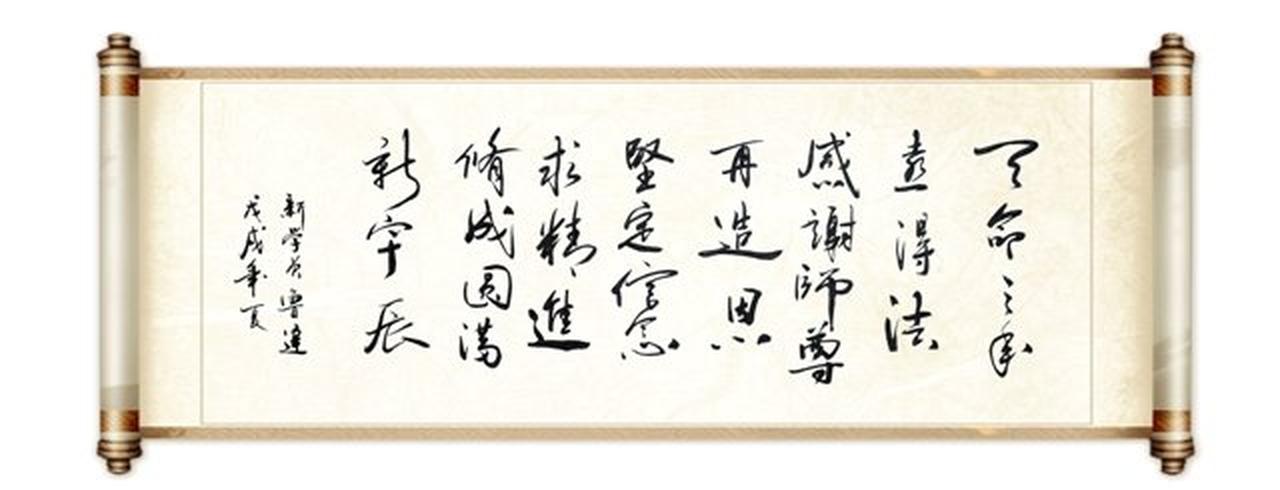 天命之年
喜得法
感謝師尊
再造恩
堅定信念
求精進
脩成圓滿
新宇辰
新学员 鲁達
戊戌年夏